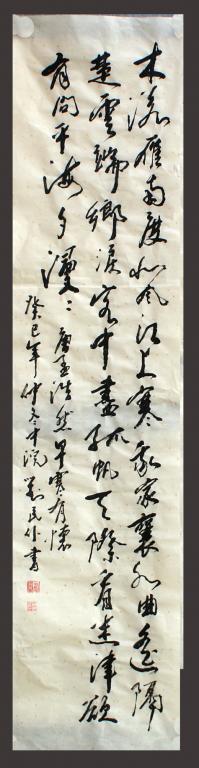 木落雁南度北风江上寒我家襄水曲遥隔
楚雲端鄉淚客中盡孤帆天際看迷津欲
有問平海夕漫〻唐孟浩然早寒有懷
癸巳年仲冬中浣劉民 書